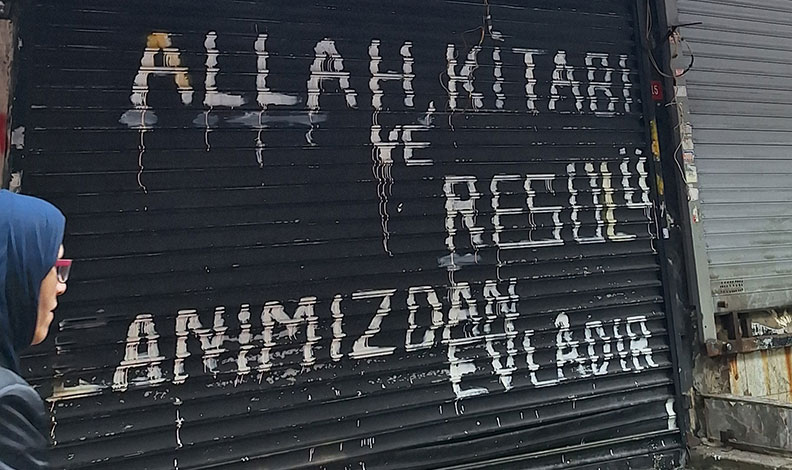 ALLAH KİTABI
VE
RESULÜ
ANIMIZDAN
EVLADIR